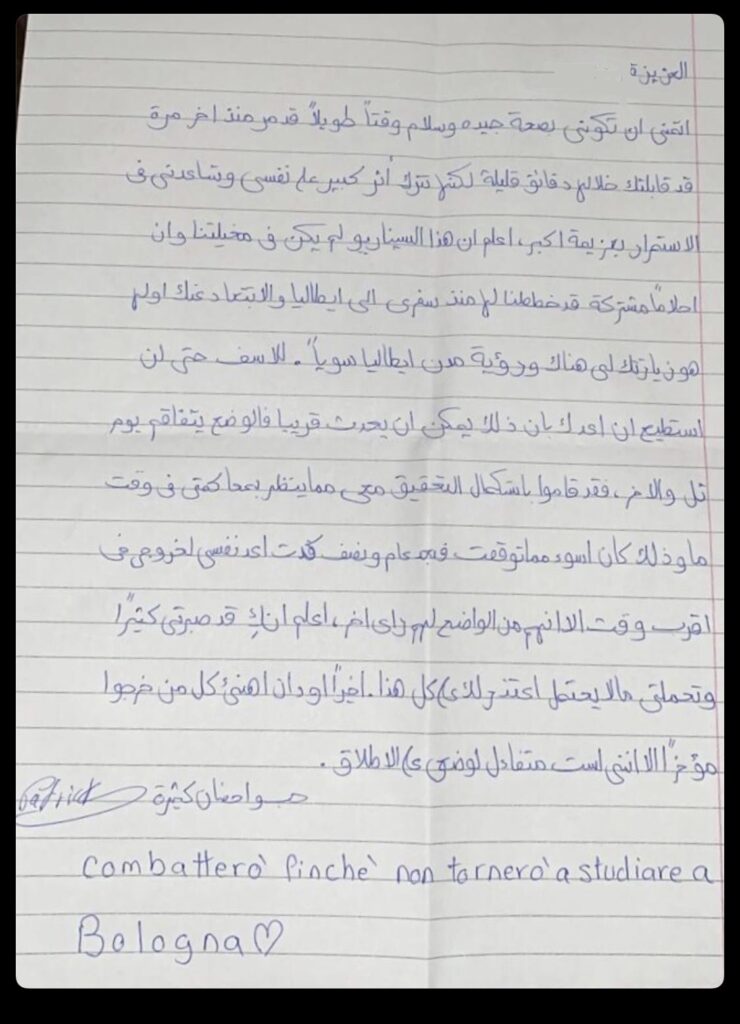 العزيزة
اتمنى ان تكونى بصحة جيده وسلام وقتاً طويلاً قد مر منذ اخر مرة
قد قابلتك خلالها دقائق قليلة لكنها تترك أثر كبير على نفسى وتساعدنى فى
الاستمرار بعزيمة اكبر، اعلم ان هذا السيناريو لم يكن فى مخيلتنا وان
احلاماً مشتركة قد خططنا لها منذ سفرى الى ايطاليا والابتعاد عنك اولها
هو زيارتك لى هناك ورؤية مدن ايطاليا سوياً. للاسف حتى لن
استطيع ان اعدك بان ذلك يمكن ان يحدث قريبا فالوضع يتفاقم يوم
تل والاخر، فقد قاموا باستكمال التحقيق معى مما ينظر بمحاكمتى فى وقت
ما وذلك كان اسوء مما توقعت فبعد عام ونصف كدت اعد نفسى لخروجى فى
اقرب وقت الا انهم من الواضح لهم راى اخر، اعلم انكِ قد صبرتى كثيرًا
وتحملتى مالا يحتمل اعتذر لك على كل هذا. اخيرًا اود ان اهنئ كل من خرجوا
مؤخرًا الا اننى لست متفائل لوضعى على الاطلاق.
حب واحضان كثيرة Patrick
combatterò finchè non tornerò a studiare a
Bologna♡